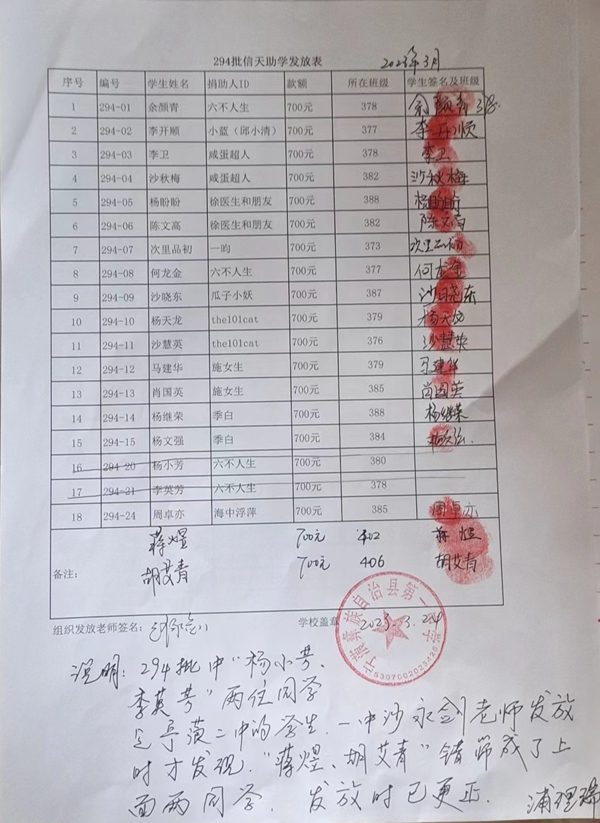 294批信天助学发放表 2023年3月
序号 编号 学生姓名 捐助人ID 款额 所在班级 学生签名及班级
1 294-01 余颜青 六不人生 700元 378 余颜青 378
2 294-02 李开顺 小蓝（邱小清） 700元 377 李开顺
3 294-03 李卫 咸蛋超人 700元 378 李卫
4 294-04 沙秋梅 咸蛋超人 700元 382 沙秋梅
5 294-05 杨盼盼 徐医生和朋友 700元 388 杨盼盼
6 294-06 陈文高 徐医生和朋友 700元 382 陈文高
7 294-07 次里品初 一昀 700元 373 次里品初
8 294-08 何龙金 六不人生 700元 377 何龙金
9 294-09 沙晓东 瓜子小妖 700元 387 沙晓东
10 294-10 杨天龙 the101cat 700元 379 杨天龙
11 294-11 沙慧英 the101cat 700元 376 沙慧英
12 294-12 马建华 施女生 700元 379 马建华
13 294-13 肖国英 施女生 700元 385 肖国英
14 294-14 杨继荣 季白 700元 388 杨继荣
15 294-15 杨文强 季白 700元 384 杨文弘
16 294-20 杨小芳 六不人生 700元 380
17 294-21 李英芳 六不人生 700元 378
18 294-24 周卓亦 海中浮萍 700元 385 周卓亦
蒋煜 700元 402 蒋煜
备注： 胡艾青 700元 406 胡艾青
组织发放老师签名： 学校盖章 2023.3.24
宁蒗彝族自治县第一中学
说明：294批中“杨小芳、
李英芳”两位同学
是宁蒗二中的学生．一中沙永剑老师发放
时才发现．“蒋煜、胡艾青”错帮成了上
面两同学．发放时已更正． 浦理瑞